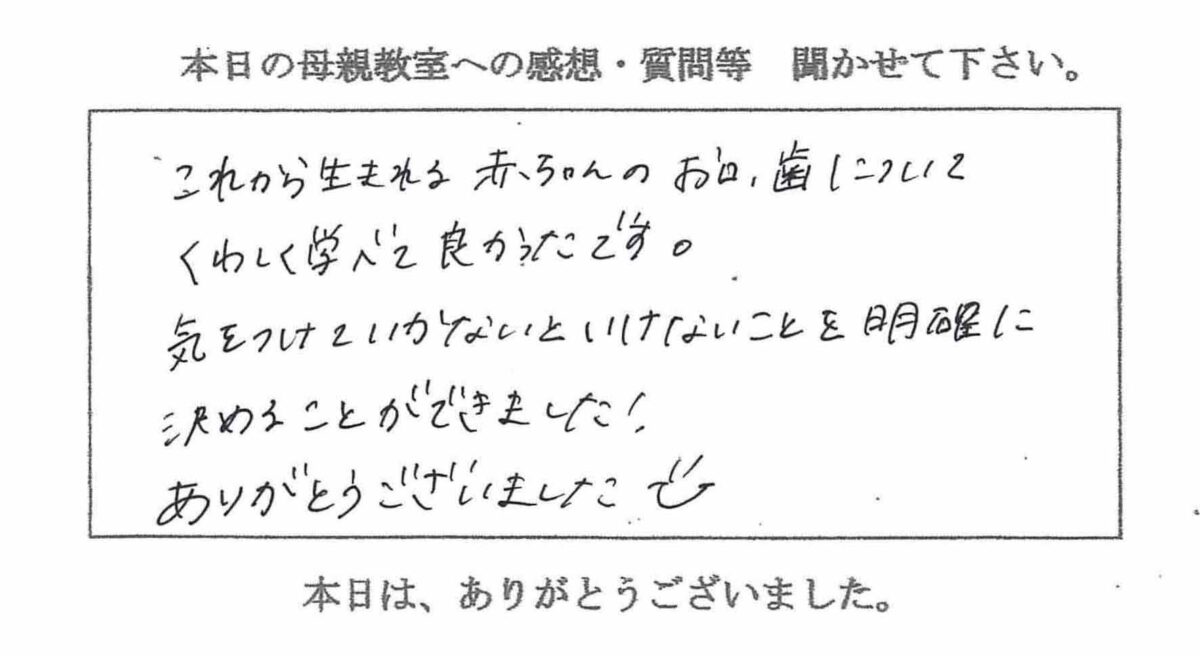 本日の母親教室への感想・質問等　聞かせて下さい。
これから生まれる赤ちゃんのお口、歯について
くわしく学べて良かったです。
気をつけていかないといけないことを明確に
決めることができました!
ありがとうございました
本日は、ありがとうございました。